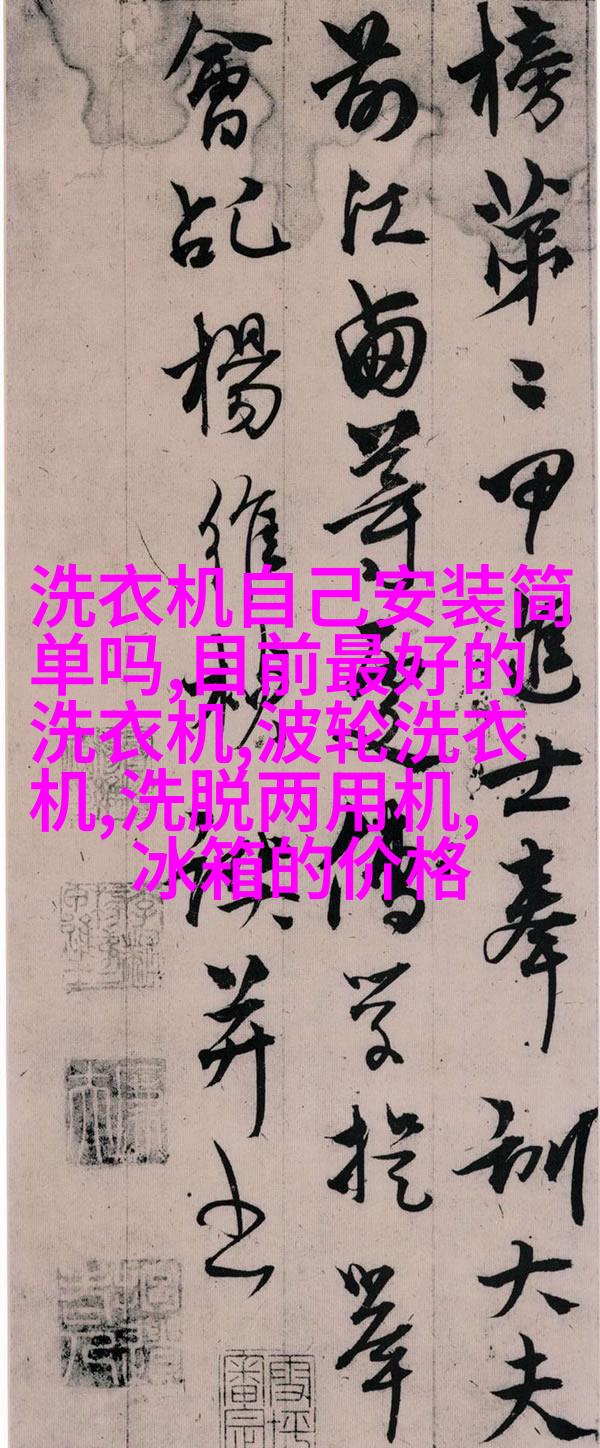 榜第二甲進士奉訓大夫
前江西等處儒學提舉
會稽楊維楨譔并書
洗衣机自己安装简
单吗,目前最好的
洗衣机,波轮洗衣
机,洗脱两用机,
冰箱的价格